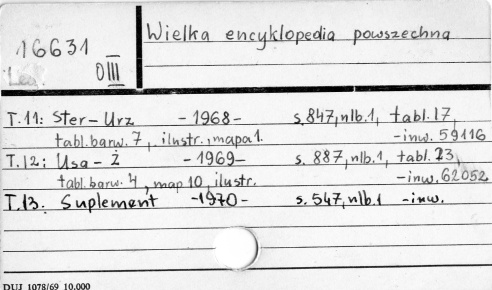 Wielka encyklopedia powszechna
16631 III
Leg. 0III
T.11: Ster-Urz -1968- s.847,nlb.1, tabl.17,
tabl.barw.7, ilustr., mapa1. -inw. 59116
T.12: Usa-Ż -1969- s. 887,nlb.1, tabl.23,
tabl.barw.4, map 10, ilustr. -inw. 62052
T.13. Suplement -1970- s.547,nlb.1 -inw.
DUJ 1078/69 10.000